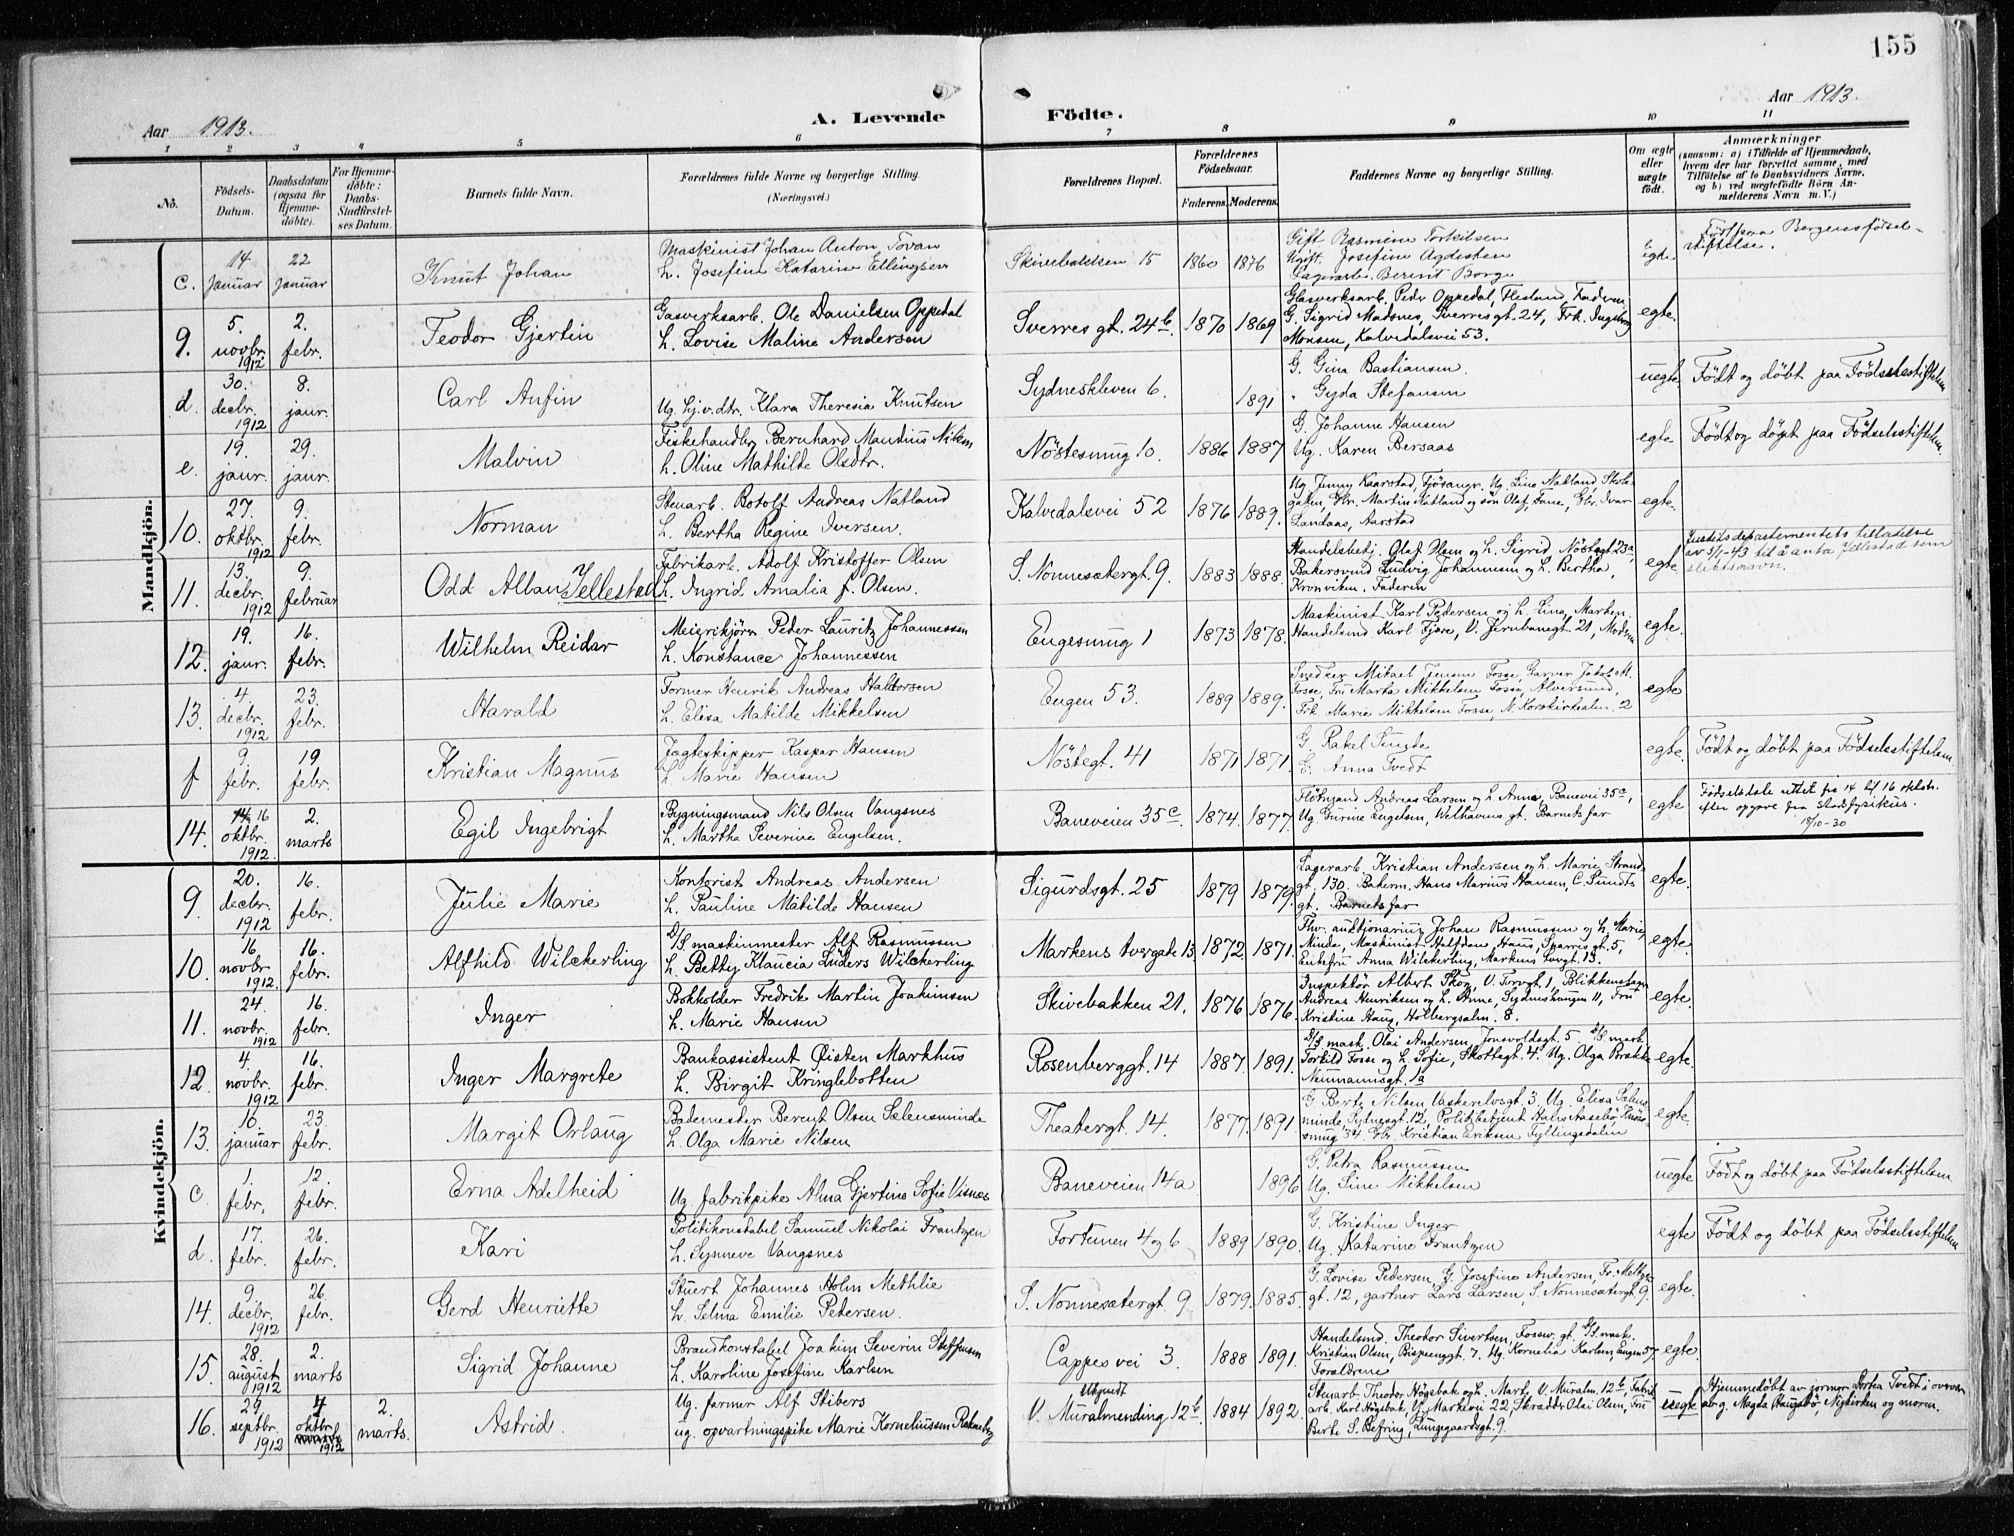 155
Aar 1913.
A. Levende Födte.
Aar 1913.
1 2 3 4 5 6 7 8 9 10 11
No.
Födsels-Datum.
Daabsdatum (ogsaa for Hjemmedöbte).
For Hjemmedöbte: Daabs-Stadfæstelses Datum.
Barnets fulde Navn.
Forældrenes fulde Navne og borgerlige Stilling. (Næringsvei.)
Forældrenes Bopæl.
Forældrenes Födselsaar.
Faderens. Moderens.
Faddernes Navne og borgerlige Stilling.
Om ægte eller uægte födt.
Anmærkninger (saasom: a) i Tilfælde af Hjemmedaab, hvem der har forrettet samme, med Tilföielse af to Daabsvidners Navne, og b) ved uægtefödte Börn Anmelderens Navn m. V.)
Mandkjön.
c. 14 Januar 22 Januar Knut Johan Maskinist Johan Anton Tovan
h. Josefine Katarine Ellingsen Skivebakken 15 1860 1876 Gift Rasmine Torkilsen
Ugift. Josefine Agdesten
Lagerarb. Berent Borge Egte Født paa Bergens fødselstiftelse.
9. 5. novbr. 1912 2. febr. Teodor Gjertin Gasverksarb. Ole Danielsen Oppedal
h. Lovise Maline Andersen Sverresgt. 24b 1870 1869 Glasverksarb. Peder Oppedal, Flesland, Faderen,
G. Sigrid Madsnes, Sverresgt. 24, Frk. Ingeborg
Monsen, Kalvedalsvei 53. egte.
d. 30. decbr. 1912 8. jaur. Carl Anfin Ug. Klara Theresia Knutsen Sydneskleven 6. 1891 G. Gina Bastiansen
" Gyda Stefansen uegte Født og døbt paa Fødselsstiftelsen
e. 19. jaur. 29. jaur. Malvin Fiskehandler Bernhard Mandius Nilsen
h. Oline Mathilde Olsdtr. Nöstesmug 10. 1886 1887 G. Johanne Hansen
Ug. Karen Bersaas egte Født og døpt paa Fødselsstiftelsen.
10. 27. oktbr. 1912 9. febr. Norman Stenarb. Botolf Andreas Natland
h. Bertha Regine Iversen. Kalvedalsvei 52 1876 1889. Ug Jenny Kaarstad, Fjøsangr. Ug. Line Natland Skolegaten, Gbr. Martin Natland og søn Olaf, Fane, Gbr. Ivar
Landaas, Aarstad egte.
11. 13. decbr. 1912 9. februar Odd Alban Jellestad Fabrikarb. Adolf Kristoffer Olsen
h. Ingrid Amalia f. Olsen. S. Nonnesætergt. 9. 1883 1888. Handelsbetj. Olaf Olsen og h. Sigrid, Nöstegt 23a,
Bakersvend Ludvig Johannesen og h. Bertha,
Kronviken. Faderen egte Justitsdepartementets tillatelse
av 5/1-43 til å anta Jellestad som
slektsnavn.
12. 19. jaur. 16. febr. Wilhelm Reidar Meierikjörer Peder Lauritz Johannessen
h. Konstance Johannessen Engesmug 1 1873 1878. Maskinist Karl Pedersen og h. Lina, Marken
Handelsmd Karl Fjære, V. Jernbanegt 21, Moderen egte.
13. 4. decbr. 1912 23. febr. Harald Former Henrik Andreas Haldorsen
h. Elisa Matilde Mikkelsen Engen 53. 1889 1889. Snedker Mikael Jensen Fosse, Garver Jakob M.
Fosse, Fru Marta Mikkelsen Fosse, Alversund,
Frk. Marie Mikkelsen Fosse, N. Korskirkealm. 2 egte
f 9. febr. 19 febr. Kristian Magnus Jagteskipper Kaspar Hansen
h. Marie Hansen Nöstegt. 41 1871 1871. G. Rakel
G. Anna Tvedt egte. Født og døbt paa Fødselsstiftelsen.
14. 14. 16 oktbr. 1912 2. marts Egil Ingebrigt Bygningsmand Nils Olsen Vangsnes
h. Martha Severine Engelsen. Baneveien 35c. 1874. 1877. Fløtmand Andreas Larsen og h. Anne, Banevei 35c,
Ug Gurine Engelsen, Welhavens gt. Barnets far egte Fødselsdato rettet fra 14 til 16 oktobr.
efter opgave fra stadsfysikus.
18/10-30
Kvindekjön.
9. 20. decbr. 1912 16. febr. Julie Marie Kontorist Andreas Andersen
h. Pauline Mathilde Hansen Sigurdsgt. 25 1879 1879. Lagerarb. Kristian Andersen og h. Marie, Strandgt. 130. Bakerm. Hans Marius Hansen, C. Sundts
gt. Barnets far egte.
10. 16 novbr. 1912 16. febr. Alfhild Wilckerling D/S maskinmester Alf Rasmussen
h. Betty Klaucia Lüders Wilckerling Markens tvergate 13 1872. 1871. Fhv. auktionarius Johan Rasmussen og h. Marie,
Minde, Maskinist Halfdan Haus, Sparresgt. 5,
Enkefru Anna Wilckerling, Markens tvergt. 13. egte.
11. 24 novbr. 1912 16. febr. Inger Bokholder Fredrik Martin Joakimsen
h. Marie Hansen Skivebakken 21. 1876 1876. Inspektør Albert Skog, V. Torvgt. 1, Blikkenslager
Andreas Henriksen og h. Anne, Sydneshaugen 11, Fru
Kristine Haus, Holbergsalm. 8. egte.
12. 4. novbr. 1912 16. febr. Inger Margrete Bankassistent Øisten Markhus
h. Birgit Kringlebotten Rosenberggt. 14 1887. 1891. D/S mask. Olai Andersen, Jonsvoldsgt. 5. D/S mask.
Torkild Fosse og h. Sofie, Skottegt. 4. Ug. Olga Brekke
Neumannsgt. 1a egte.
13. 10. januar 23. febr. Margit Orlaug Bademester Berent Olsen Sælensminde
h. Olga Marie Nilsen Theatergt. 14. 1877. 1891 G. Berte Nilsen Vaskerelvsgt. 3. Ug. Elisa Sælensminde, Sydnesgt. 12, Politibetjent Halvor Aasebø,
smug 34. Gbr. Kristian Eriksen Fyllingsdalen egte.
c 1. febr. 12. febr. Erna Adelheid Ug. fabrikpike Alma Gjertine Sofie Visnes Baneveien 14a 1896 G. Petra Rasmussen
Ug. Sine Mikkelsen uegte Født og døbt paa Fødselsstiftelsen.
d. 17. febr. 26. febr. Kari Politikonstabel Samuel Nikolai Frantzen
h. Synneve Vangsnes Fortunen 4 og 6 1889 1890. G. Kristine Inger
Ug. Katarine Frantzen egte Født og døbt paa Fødselsstiftelsen
14. 9. decbr. 1912 26. febr. Gerd Henriette Stuert Johannes Holm Methlie
h. Selma Emilie Petersen. S. Nonnesætergt. 9 1879. 1885. G. Lovise Pedersen, G. Josefine Andersen, Fr. Meltzersgt. 12, gartner Lars Larsen, S. Nonnesætergt. 9. egte.
15. 28. august 1912 2. marts Sigrid Johanne Brandkonstabel Joakim Severin Steffensen
h. Karoline Josefine Karlsen Cappesvei 3. 1888 1891. Handelsmd. Theodor Sivertsen, Fossw. gt. D/S mask.
Kristian Olsen, Bispenggt. 7. Ug. Kornelia Karlsen, Engen 57.
Forældrene egte.
16. 29. septbr. 1912 4 oktbr. 1912 2. marts. Astrid. Ug. farmer Alf Stibers
ug. opvartningspike Marie Korneliussen ubkjendt
V. Muralmending 12b. 1884 1892. Stenarb. Theodor Høgsbak og h. Mart, V. Muralm. 12b, Fabrikarb. Karl Høgsbak V. Markevei 22 Skrædder Olai Olsen, Fru
Berte S. Befring, Lungegaardsgt. 9. uegte Hjemmedøbt av jormor Dortea Tvedt i overvær
av g. Magda Haugsbø, Nykirken og moren.